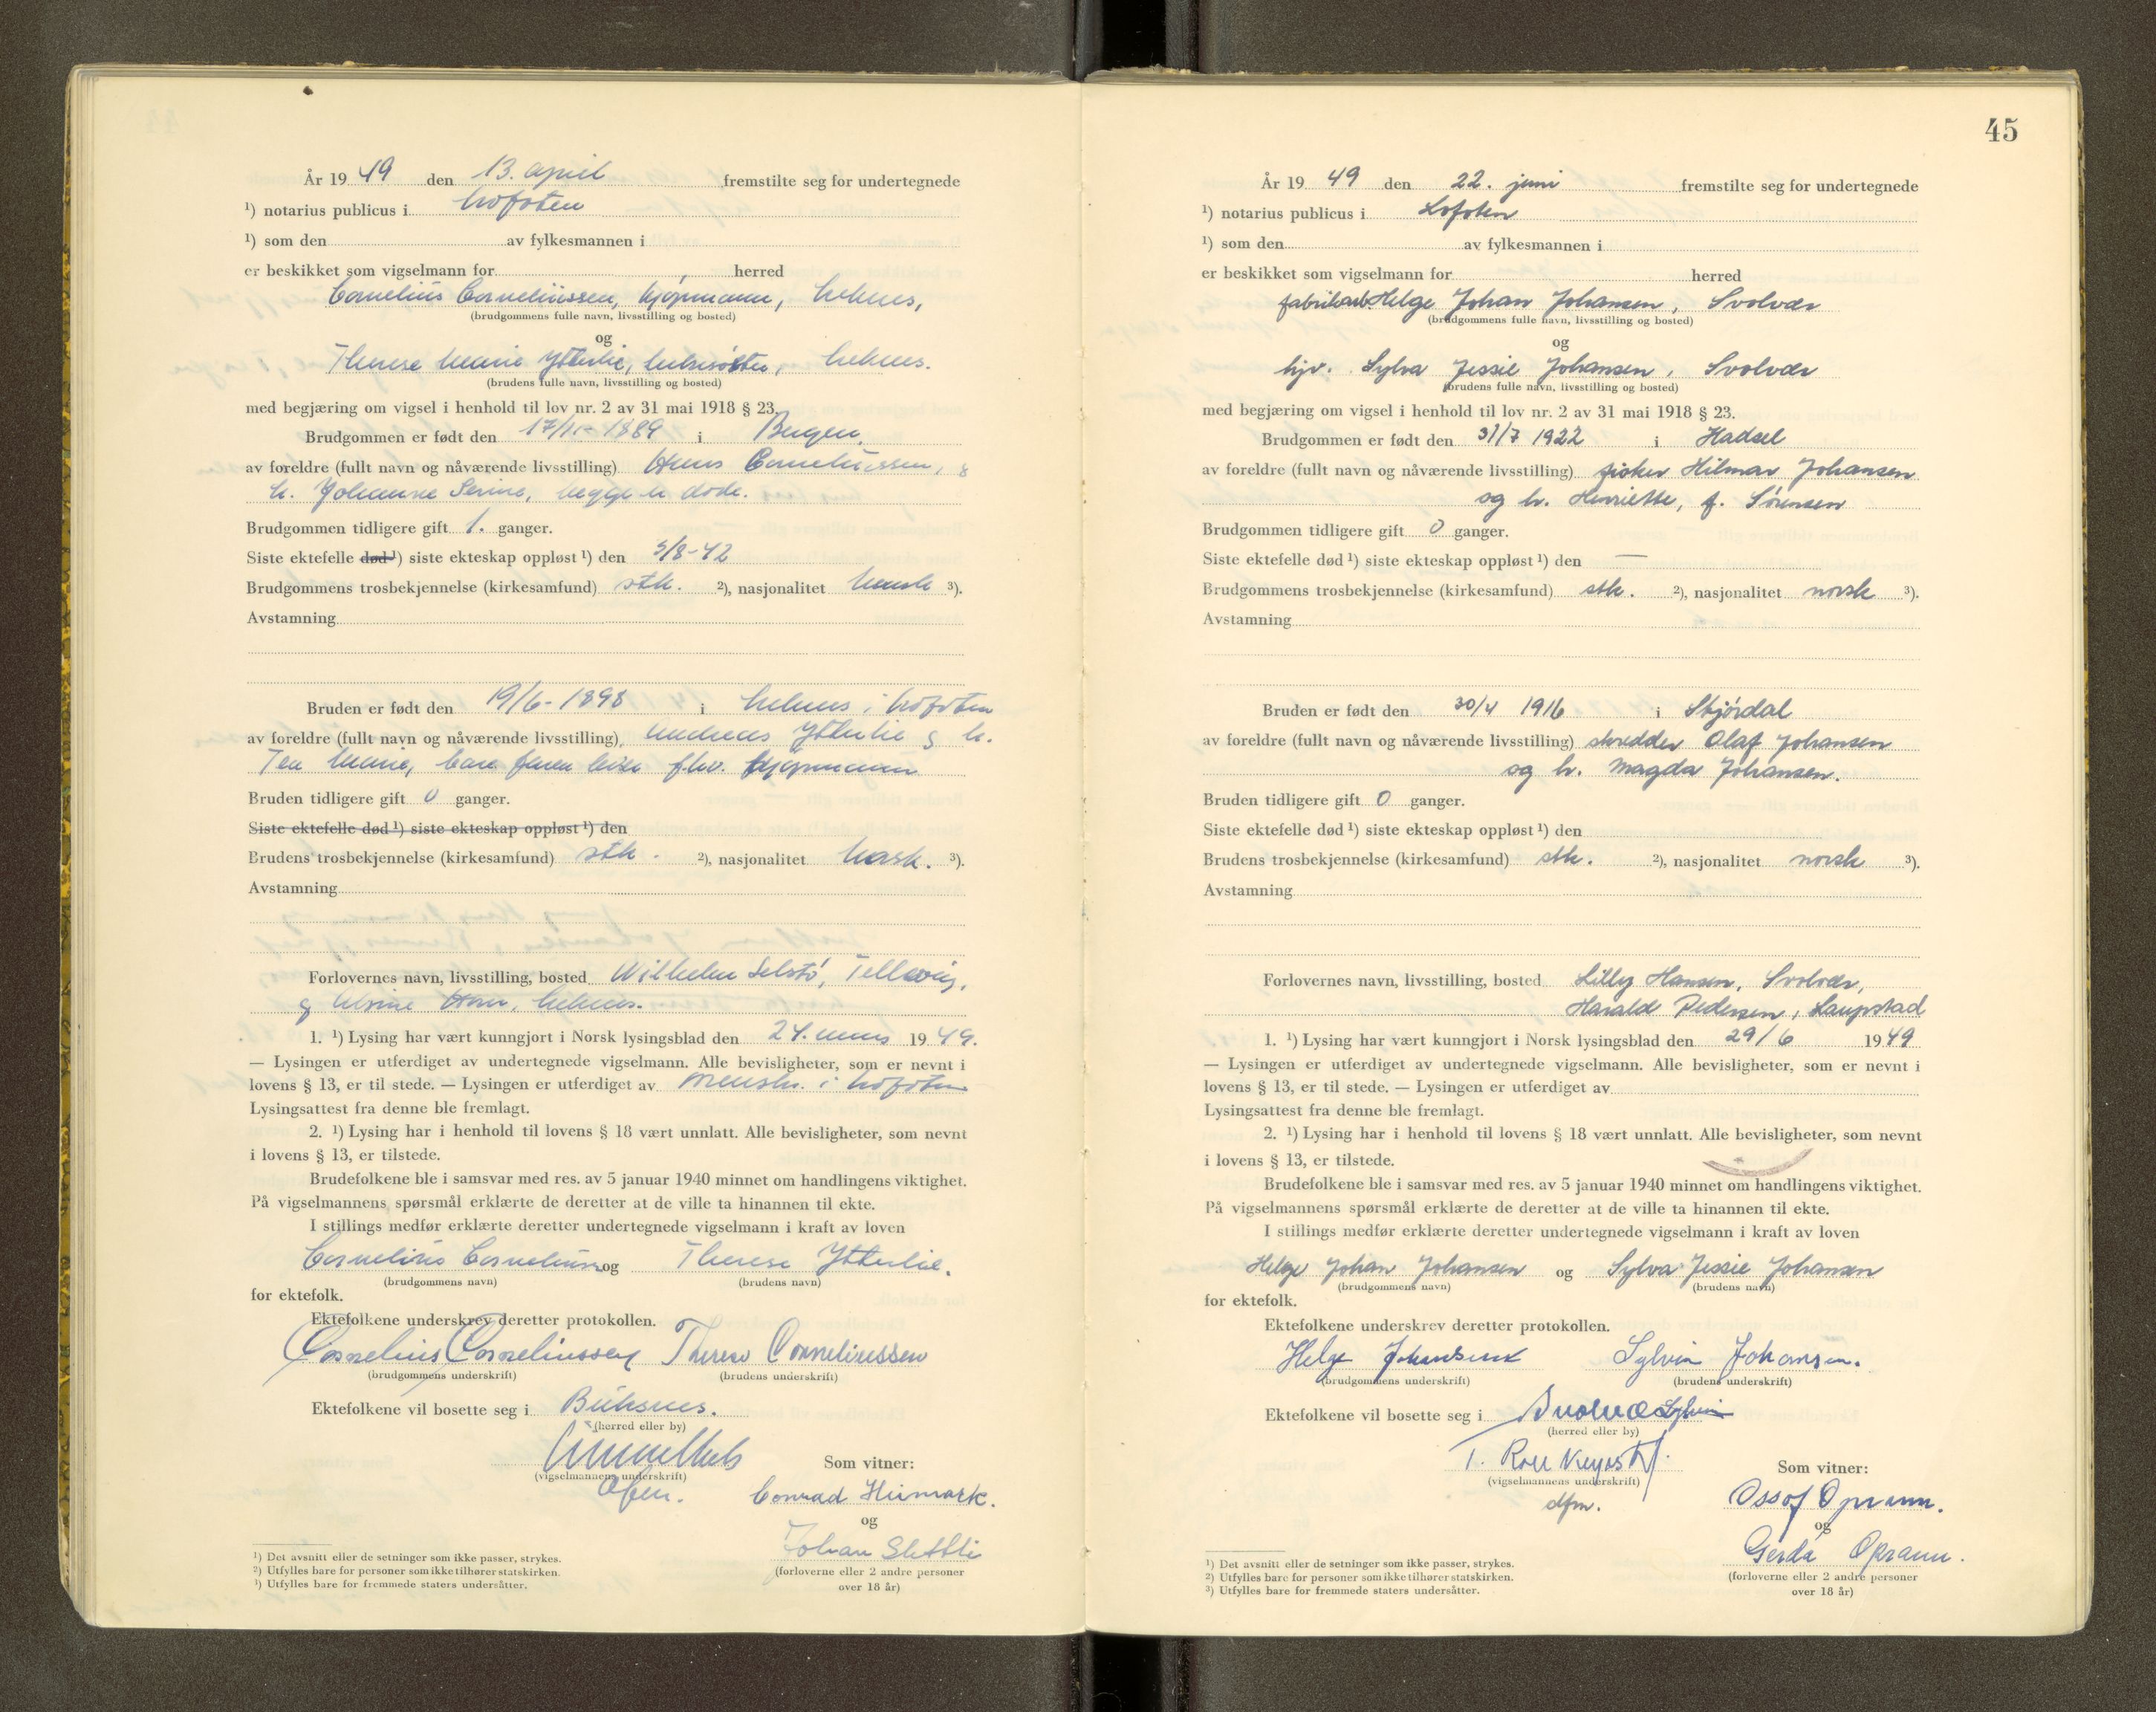 År 19 49 den 13. april fremstilte seg for undertegnede
¹) notarius publicus i Lofoten
¹) som den av fylkesmannen i
er beskikket som vigselmann for herred
Cornelius Corneliussen, kjøpmann, Leknes,
(brudgommens fulle navn, livsstilling og bosted)
og
Therese Marie Ytterlie, helsesøster, Leknes.
(brudens fulle navn, livsstilling og bosted)
med begjæring om vigsel i henhold til lov nr. 2 av 31 mai 1918 § 23.
Brudgommen er født den 17/11-1889 i Bergen.
av foreldre (fullt navn og nåværende livsstilling) Hans Corneliussen, &
h. Johanne Serine, begge er døde.
Brudgommen tidligere gift 1. ganger.
Siste ektefelle død ¹) siste ekteskap oppløst ¹) den 5/8-42
Brudgommens trosbekjennelse (kirkesamfund) stk. ²), nasjonalitet norsk ³).
Avstamning
Bruden er født den 19/6-1898 i Leknes i Lofoten
av foreldre (fullt navn og nåværende livsstilling) Andreas Ytterlie & h.
Tea Marie, bare faren lever fhv. kjøpmann
Bruden tidligere gift 0 ganger.
Siste ektefelle død ¹) siste ekteskap oppløst ¹) den
Brudens trosbekjennelse (kirkesamfund) stk. ²), nasjonalitet norsk. ³).
Avstamning
Forlovernes navn, livsstilling, bosted Wilhelm Selstø,
Leknes.
1. ¹) Lysing har vært kunngjort i Norsk lysingsblad den 24. mars 19 49.
— Lysingen er utferdiget av undertegnede vigselmann. Alle bevisligheter, som er nevnt i
lovens § 13, er til stede. — Lysingen er utferdiget av sorenskr. i Lofoten
Lysingsattest fra denne ble fremlagt.
2. ¹) Lysing har i henhold til lovens § 18 vært unnlatt. Alle bevisligheter, som nevnt
i lovens § 13, er tilstede.
Brudefolkene ble i samsvar med res. av 5 januar 1940 minnet om handlingens viktighet.
På vigselmannens spørsmål erklærte de deretter at de ville ta hinannen til ekte.
I stillings medfør erklærte deretter undertegnede vigselmann i kraft av loven
Cornelius Corneliussen og Therese Ytterlie.
(brudgommens navn) (brudens navn)
for ektefolk.
Ektefolkene underskrev deretter protokollen.
Cornelius Corneliussen Therese Corneliussen
(brudgommens underskrift) (brudens underskrift)
Ektefolkene vil bosette seg i Buksnes.
(herred eller by)
(vigselmannens underskrift) Som vitner:
Conrad Heimark.
og
Johan Sletlli
(forloverne eller 2 andre personer
over 18 år)
¹) Det avsnitt eller de setninger som ikke passer, strykes.
²) Utfylles bare for personer som ikke tilhører statskirken.
³) Utfylles bare for fremmede staters undersåtter.
45
År 19 49 den 22. juni fremstilte seg for undertegnede
¹) notarius publicus i Lofoten
¹) som den av fylkesmannen i
er beskikket som vigselmann for herred
fabrikarb. Helge Johan Johansen, Svolvær
(brudgommens fulle navn, livsstilling og bosted)
og
hjv. Sylva Jessie Johansen, Svolvær
(brudens fulle navn, livsstilling og bosted)
med begjæring om vigsel i henhold til lov nr. 2 av 31 mai 1918 § 23.
Brudgommen er født den 31/7 1922 i Hadsel
av foreldre (fullt navn og nåværende livsstilling) fisker Hilmar Johansen
og h. Henriette, f. Sørensen
Brudgommen tidligere gift 0 ganger.
Siste ektefelle død ¹) siste ekteskap oppløst ¹) den —
Brudgommens trosbekjennelse (kirkesamfund) stk. ²), nasjonalitet norsk ³).
Avstamning
Bruden er født den 30/4 1916 i Stjørdal
av foreldre (fullt navn og nåværende livsstilling) skredder Olaf Johansen
og h. Magda Johansen.
Bruden tidligere gift 0 ganger.
Siste ektefelle død ¹) siste ekteskap oppløst ¹) den
Brudens trosbekjennelse (kirkesamfund) stk. ²), nasjonalitet norsk ³).
Avstamning
Forlovernes navn, livsstilling, bosted Lilly Hansen, Svolvær,
Harald Pedersen, Laupstad
1. ¹) Lysing har vært kunngjort i Norsk lysingsblad den 29/6 19 49
— Lysingen er utferdiget av undertegnede vigselmann. Alle bevisligheter, som er nevnt i
lovens § 13, er til stede. — Lysingen er utferdiget av
Lysingsattest fra denne ble fremlagt.
2. ¹) Lysing har i henhold til lovens § 18 vært unnlatt. Alle bevisligheter, som nevnt
i lovens § 13, er tilstede.
Brudefolkene ble i samsvar med res. av 5 januar 1940 minnet om handlingens viktighet.
På vigselmannens spørsmål erklærte de deretter at de ville ta hinannen til ekte.
I stillings medfør erklærte deretter undertegnede vigselmann i kraft av loven
Helge Johan Johansen og Sylva Jessie Johansen
(brudgommens navn) (brudens navn)
for ektefolk.
Ektefolkene underskrev deretter protokollen.
Helge Johansen Sylvia Johansen.
(brudgommens underskrift) (brudens underskrift)
Ektefolkene vil bosette seg i Svolvæ Sylvia
(herred eller by)
(vigselmannens underskrift) Som vitner:
dfm.
og
Gerda
(forloverne eller 2 andre personer
over 18 år)
¹) Det avsnitt eller de setninger som ikke passer, strykes.
²) Utfylles bare for personer som ikke tilhører statskirken.
³) Utfylles bare for fremmede staters undersåtter.